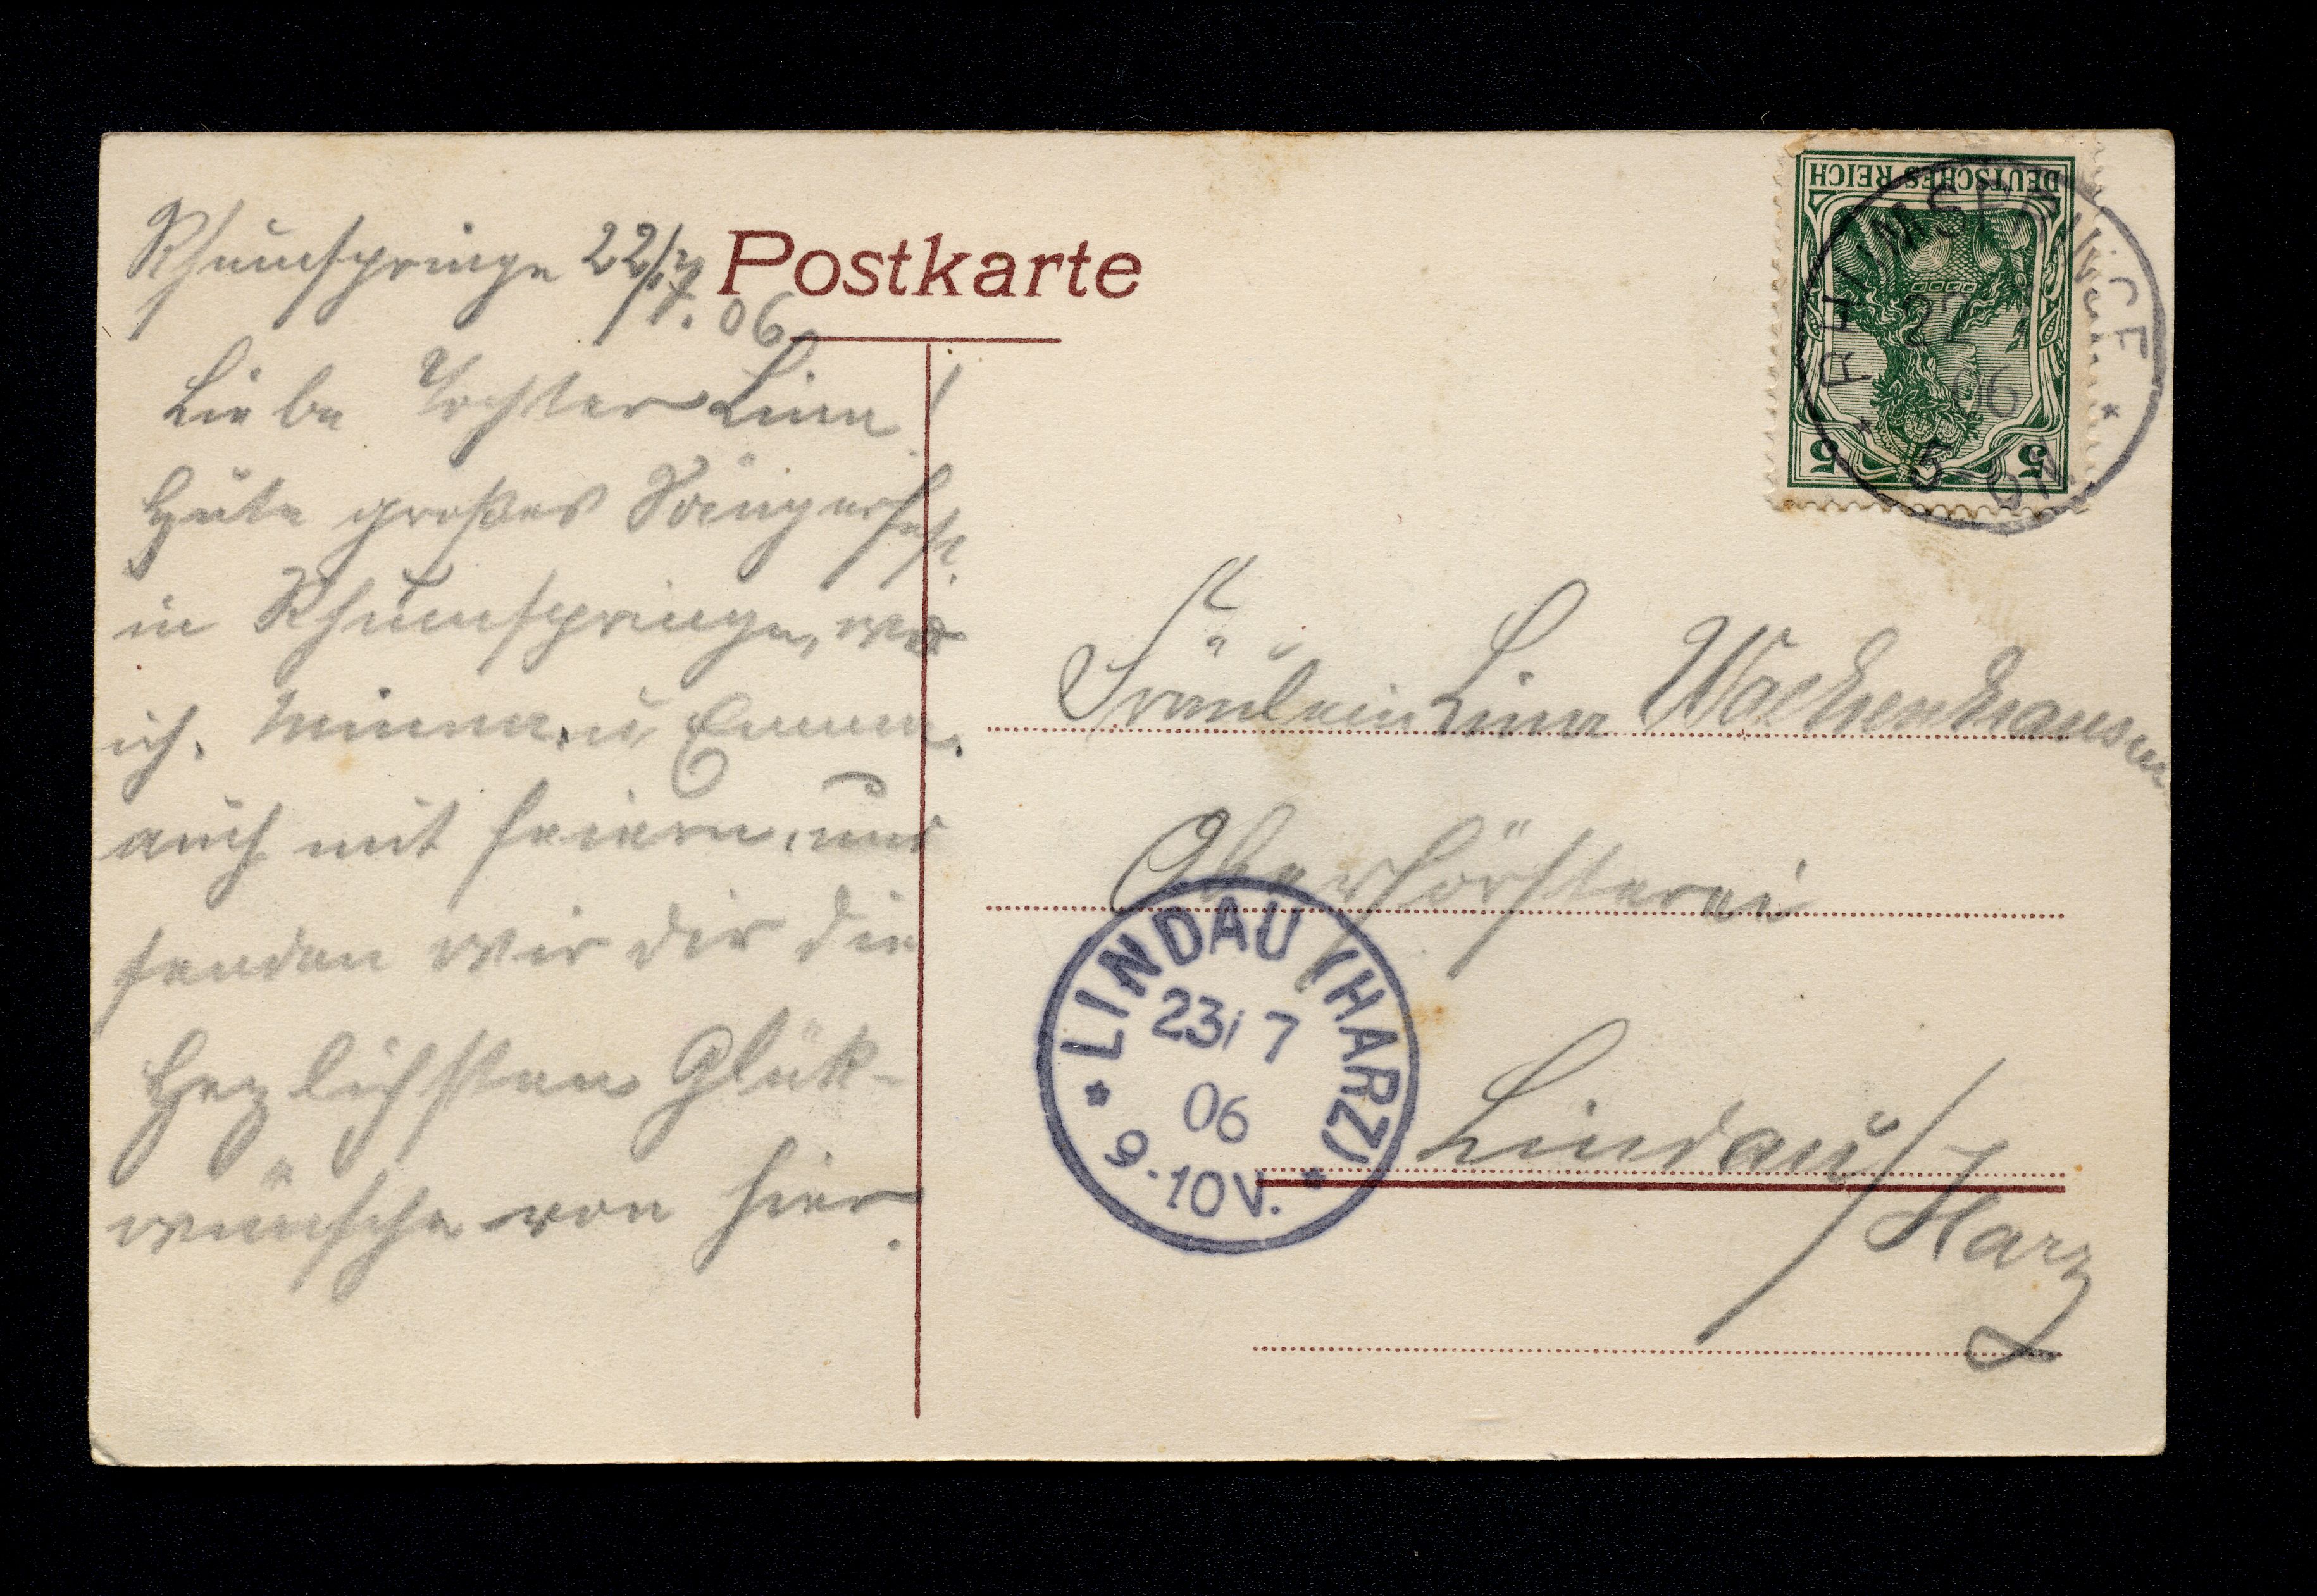 Rhumspringe 22/7. 06
Postkarte
Liebe Tochter Lina!
Heute großes Sängerfest.
in Rhumspringe, wo
ich. Minna. u Emma.
auch mit feiern, und
senden wir dir die
Hezlichsten Glük-
wünsche von hier.
DEUTSCHES REICH
5 5
RHUMSPRINGE
22
06
5
Fräulein Lina Wachenhausen
Oberförsterei
Lindau/Harz
LINDAU (HARZ)
23/7
06
9-10V.